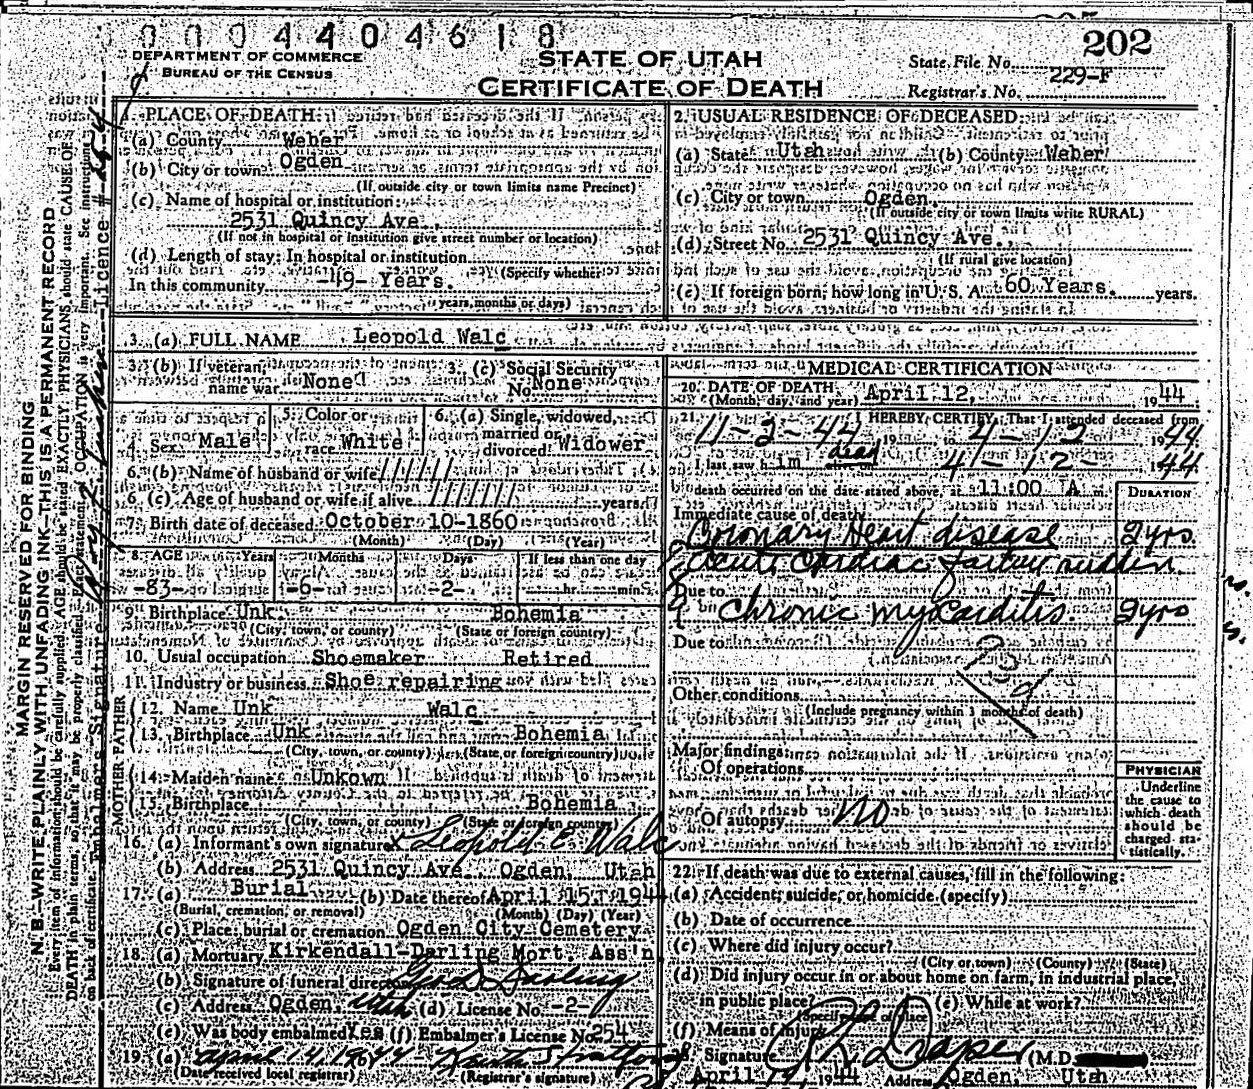 0 0 0 4 4 0 4 6 1 8
202
DEPARTMENT OF COMMERCE
BUREAU OF THE CENSUS
STATE OF UTAH
CERTIFICATE OF DEATH
State File No.
229-F
Registrar's No.
MARGIN RESERVED FOR BINDING
N. B.—WRITE PLAINLY WITH UNFADING INK—THIS IS A PERMANENT RECORD
Every item of information should be carefully supplied. AGE should be stated EXACTLY. PHYSICIANS should state CAUSE OF
DEATH in plain terms, so that it may be properly classified. Exact statement of OCCUPATION is very important. See instructions
on back of certificate.
Embalmers Signature License #
1. PLACE OF DEATH:
(a) County Weber
(b) City or town Ogden
(If outside city or town limits name Precinct)
(c) Name of hospital or institution:
2531 Quincy Ave.,
(If not in hospital or institution give street number or location)
(d) Length of stay: In hospital or institution
(Specify whether
In this community -49- Years.
years, months or days)
2. USUAL RESIDENCE OF DECEASED:
(a) State Utah (b) County Weber
(c) City or town Ogden,
(If outside city or town limits write RURAL)
(d) Street No. 2531 Quincy Ave.,
(If rural give location)
(e) If foreign born, how long in U. S. A. 60 Years. years.
3. (a) FULL NAME Leopold Walc
3. (b) If veteran,
name war None
3. (c) Social Security
No. None
4. Sex Male
5. Color or
race White
6. (a) Single, widowed,
married or
divorced Widower
6. (b) Name of husband or wife //////
6. (c) Age of husband or wife if alive //////// years
7. Birth date of deceased October 10-1860
(Month) (Day) (Year)
8. AGE Years Months Days If less than one day
-83- -6- -2- hr. min.
9. Birthplace Unk Bohemia
(City, town, or county) (State or foreign country)
10. Usual occupation Shoemaker Retired
11. Industry or business Shoe repairing
FATHER
12. Name Unk Walc
13. Birthplace Unk Bohemia
(City, town, or county) (State or foreign country)
MOTHER
14. Maiden name Unkown
15. Birthplace Bohemia
(City, town, or county) (State or foreign country)
16. (a) Informant's own signature x Leopold E. Walc
(b) Address 2531 Quincy Ave. Ogden, Utah
17. (a) Burial (b) Date thereof April 15, 1944
(Burial, cremation, or removal) (Month) (Day) (Year)
(c) Place: burial or cremation Ogden City Cemetery
18. (a) Mortuary Kirkendall-Darling Mort. Ass'n
(b) Signature of funeral director Geo D. Darling
(c) Address Ogden, Utah (d) License No. -2-
(e) Was body embalmed Yes (f) Embalmer's License No. 254
19. (a) April 14, 1944
(Date received local registrar) (Registrar's signature)
MEDICAL CERTIFICATION
20. DATE OF DEATH
(Month, day, and year) April 12, 1944
21. I HEREBY CERTIFY, That I attended deceased from
11-2-44 19 to 4-12- 1944
I last saw him dead 4-12- 1944
death occurred on the date stated above, at 11:00 A m.
DURATION
Immediate cause of death
Coronary Heart disease 2 yrs.
Acute Cardiac failure sudden.
Due to
Chronic myocarditis. 2 yrs
Due to
Other conditions
(Include pregnancy within 3 months of death)
Major findings:
Of operations
Of autopsy NO
PHYSICIAN
Underline
the cause to
which death
should be
charged sta-
tistically.
22. If death was due to external causes, fill in the following:
(a) Accident, suicide, or homicide (specify)
(b) Date of occurrence
(c) Where did injury occur?
(City or town) (County) (State)
(d) Did injury occur in or about home on farm, in industrial place,
in public place? (e) While at work?
(Specify type of place)
(f) Means of injury
Signature Draper (M.D.
April 1944 Address Ogden Utah